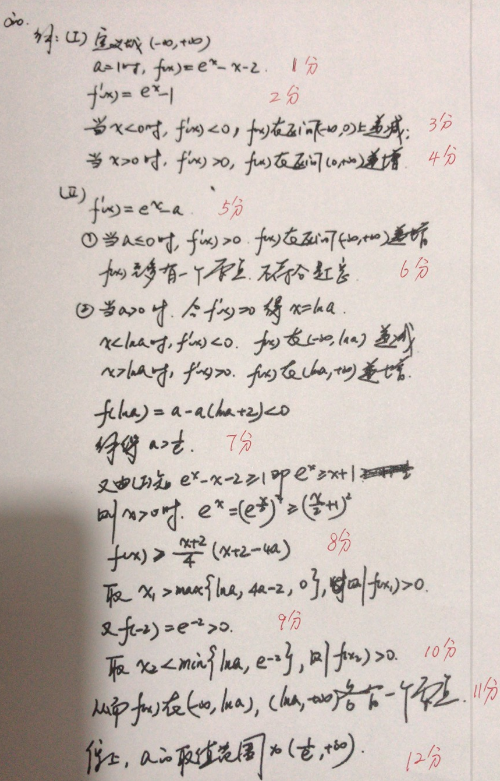 20.
解:(I) 定义域(-∞,+∞)
a=1时, f(x)=eˣ-x-2. 1分
f'(x)=eˣ-1 2分
当x<0时, f'(x)<0, f(x)在区间(-∞,0)上递减; 3分
当x>0时, f'(x)>0, f(x)在区间(0,+∞)递增. 4分
(II)
f'(x)=eˣ-a. 5分
①当a≤0时, f'(x)>0. f(x)在区间(-∞,+∞)递增
f(x)至多有一个零点. 不符合题意. 6分
②当a>0时. 令f'(x)=0得x=lna.
x<lna时, f'(x)<0. f(x)在(-∞,lna)递减
x>lna时, f'(x)>0. f(x)在(lna,+∞)递增.
f(lna)=a-a(lna+2)<0
解得a>1/e. 7分
又由(I)知 eˣ-x-2≥1即eˣ≥x+1
则x>0时. eˣ=(e^(x/2))²≥(x/2+1)²
f(x)≥(x+2)/4(x+2-4a) 8分
取x₁>max{lna, 4a-2, 0}, 则f(x₁)>0.
又f(-2)=e⁻²>0. 9分
取x₂<min{lna, e-2}, 则f(x₂)>0. 10分
从而f(x)在(-∞,lna), (lna,+∞)各有一个零点. 11分
综上, a的取值范围为(1/e,+∞). 12分